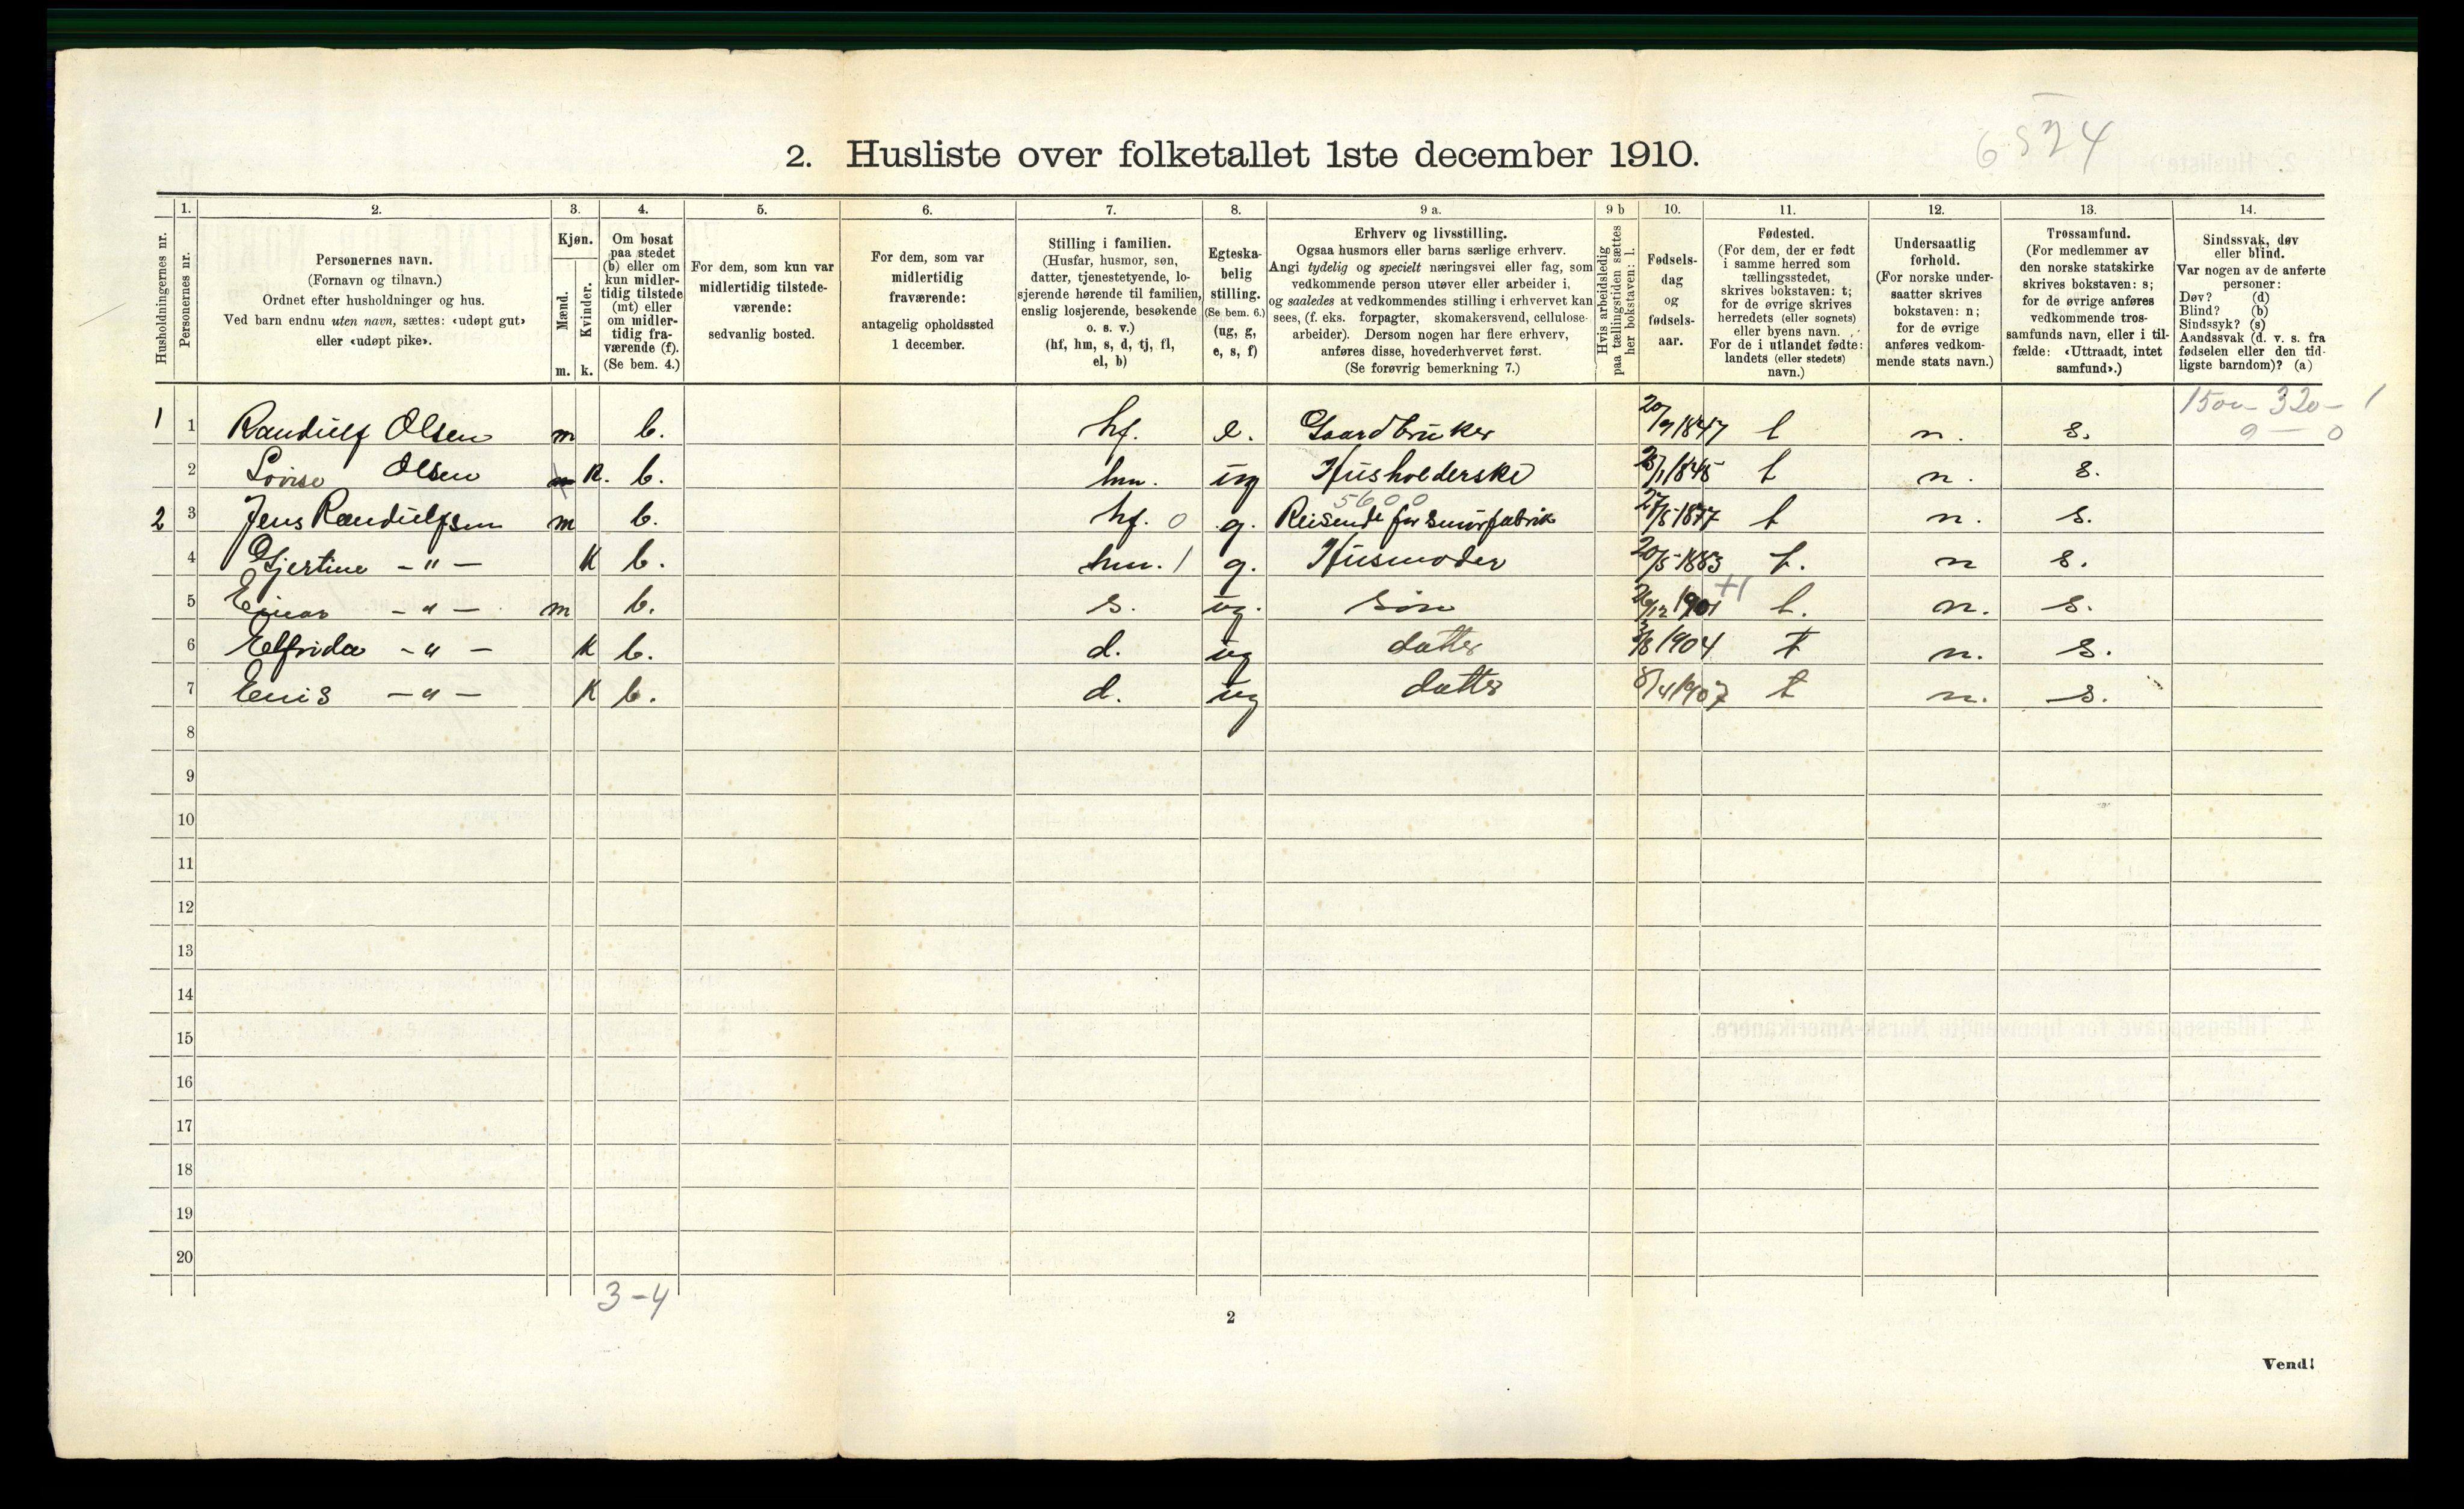 6524
2. Husliste over folketallet 1ste december 1910.
Husholdningernes nr.
1. Personernes nr.
2. Personernes navn.
(Fornavn og tilnavn.)
Ordnet efter husholdninger og hus.
Ved barn endnu uten navn, sættes: «udøpt gut»
eller «udøpt pike».
3. Kjøn.
Mænd. m.
Kvinder. k.
4. Om bosat
paa stedet
(b) eller om
kun midler-
tidig tilstede
(mt) eller
om midler-
tidig fra-
værende (f).
(Se bem. 4.)
5. For dem, som kun var
midlertidig tilstede-
værende:
sedvanlig bosted.
6. For dem, som var
midlertidig
fraværende:
antagelig opholdssted
1 december.
7. Stilling i familien.
(Husfar, husmor, søn,
datter, tjenestetyende, lo-
sjerende hørende til familien,
enslig losjerende, besøkende
o. s. v.)
(hf, hm, s, d, tj, fl,
el, b)
8. Egteska-
belig
stilling.
(Se bem. 6.)
(ug, g,
e, s, f)
9 a. Erhverv og livsstilling.
Ogsaa husmors eller barns særlige erhverv.
Angi tydelig og specielt næringsvei eller fag, som
vedkommende person utøver eller arbeider i,
og saaledes at vedkommendes stilling i erhvervet kan
sees, (f. eks. forpagter, skomakersvend, cellulose-
arbeider). Dersom nogen har flere erhverv,
anføres disse, hovederhvervet først.
(Se forøvrig bemerkning 7.)
9 b Hvis arbeidsledig
paa tællingstiden sættes
her bokstaven: l.
10. Fødsels-
dag
og
fødsels-
aar.
11. Fødested.
(For dem, der er født
i samme herred som
tællingsstedet,
skrives bokstaven: t;
for de øvrige skrives
herredets (eller sognets)
eller byens navn.
For de i utlandet fødte:
landets (eller stedets)
navn.)
12. Undersaatlig
forhold.
(For norske under-
saatter skrives
bokstaven: n;
for de øvrige
anføres vedkom-
mende stats navn.)
13. Trossamfund.
(For medlemmer av
den norske statskirke
skrives bokstaven: s;
for de øvrige anføres
vedkommende tros-
samfunds navn, eller i til-
fælde: «Uttraadt, intet
samfund».)
14. Sindssvak, døv
eller blind.
Var nogen av de anførte
personer:
Døv? (d)
Blind? (b)
Sindssyk? (s)
Aandssvak (d. v. s. fra
fødselen eller den tid-
ligste barndom)? (a)
1500 - 320 - 1
9 — 0
1 1 Randulf Olsen m b. hf. e. Gaardbruker 20/9 1847 t n. s.
2 Lovise Olsen k. b. hm. ug Husholderske 1845 t n. s.
5600
2 3 Jens Randulfsen m b. hf. 0 g. Reisende for smørfabrik 27/5 1877 t n. s.
4 Gjertine - " - K b. hm. 1 g. Husmoder 20/5 1883 t. n s.
5 Einar - " - m b. s. ug. søn 26/12 1901 t. n. s.
6 Elfrida - " - K b. d. ug datter 3/8 1904 t n. s.
7 Enis - " - K b. d. ug datter 8/4 1907 t n. s.
8
9
10
11
12
13
14
15
16
17
18
19
20
3 - 4
2
Vend!